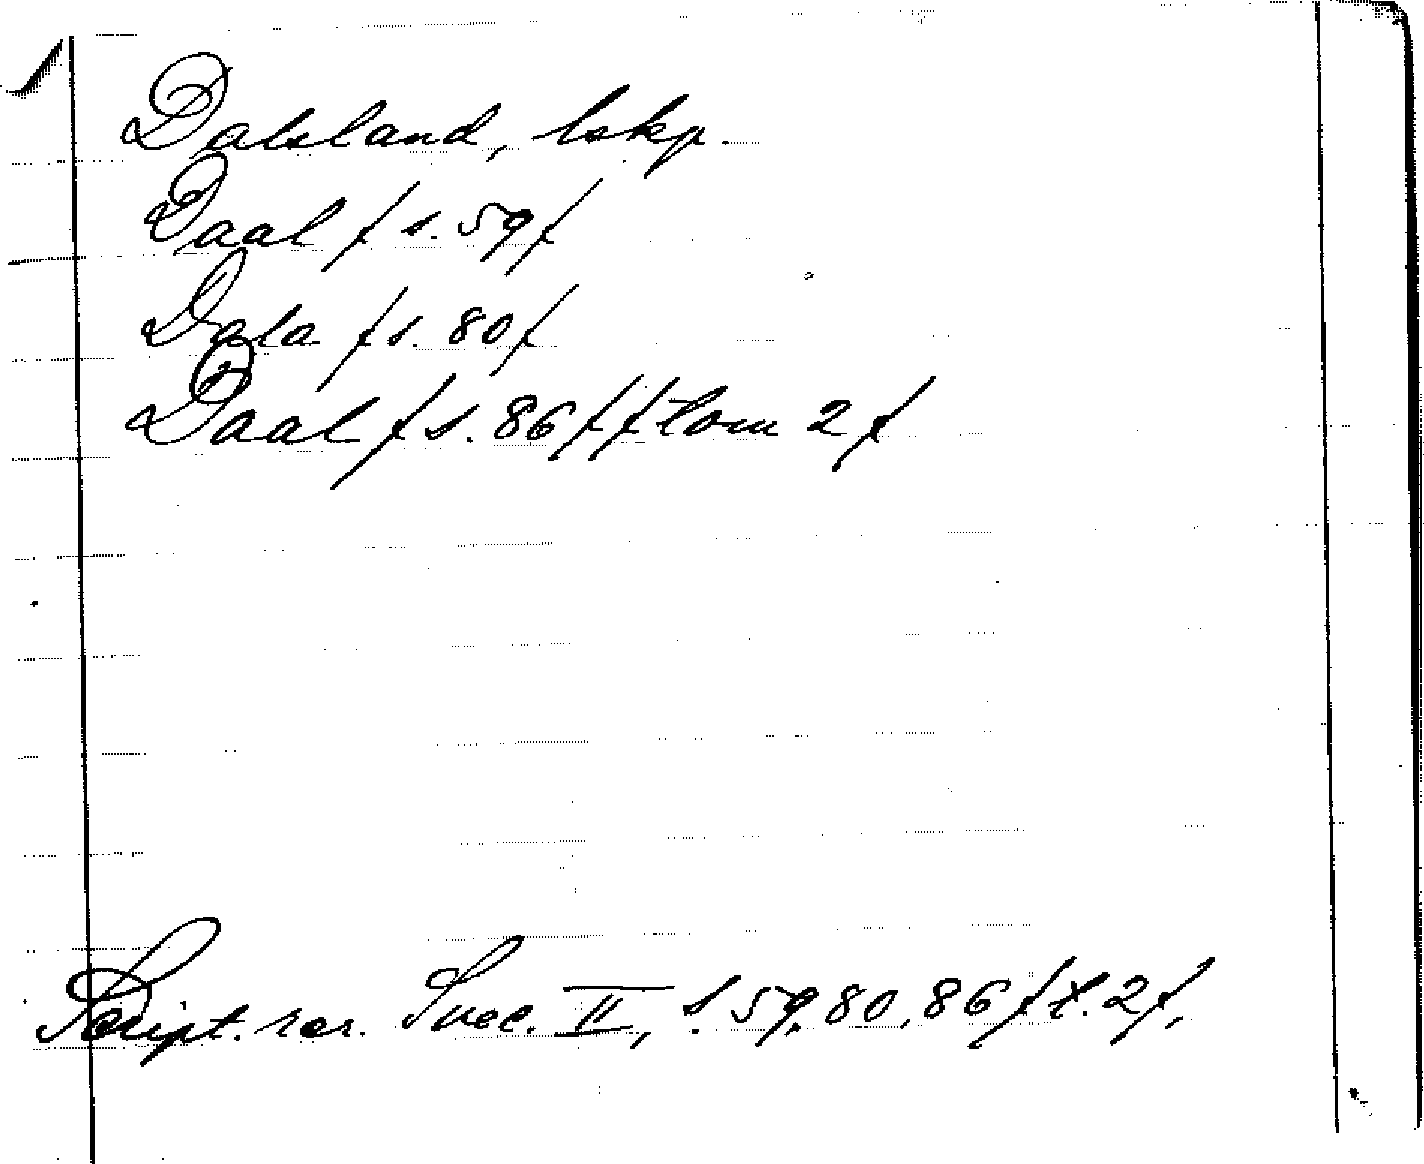 Dalsland, lskp.
Daal /s. 59/
Dala /s. 80/
Daal /s. 86/ /tom 2/
Script. rer. Svec. II, s. 59, 80, 86 /t. 2/,